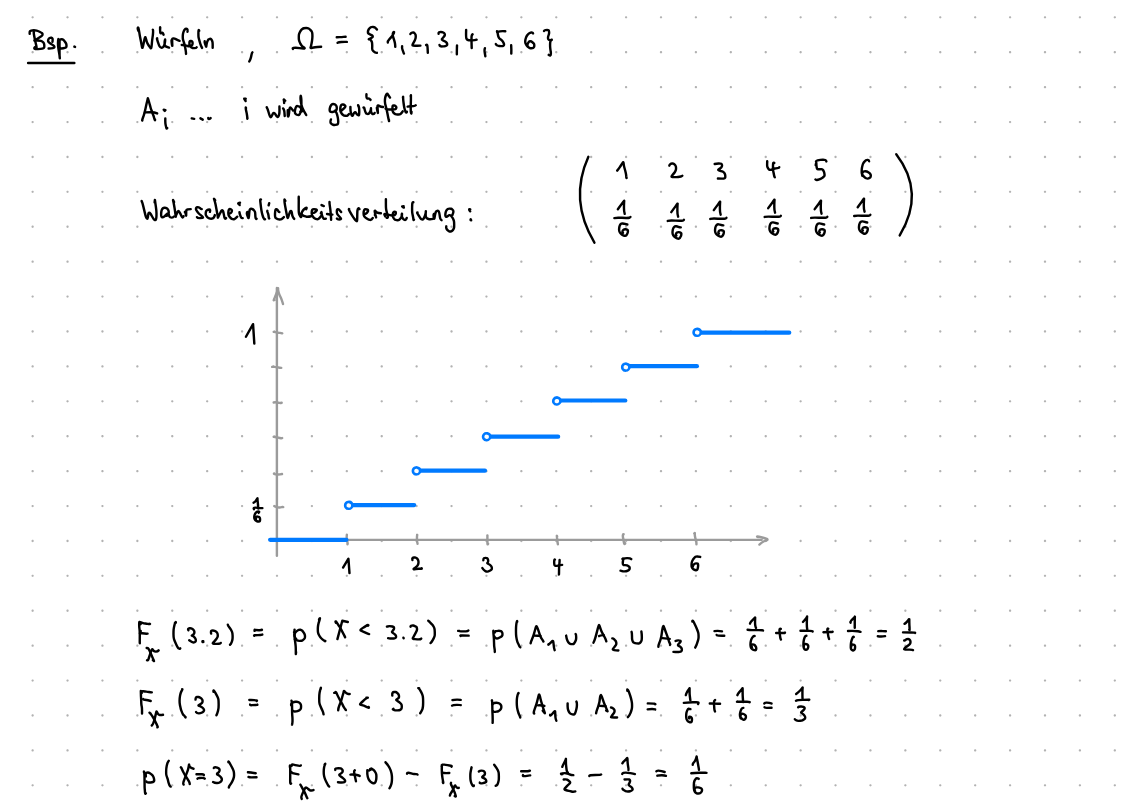 Bsp. Würfeln , Ω = {1,2,3,4,5,6}
A_i ... i wird gewürfelt
1 2 3 4 5 6
Wahrscheinlichkeitsverteilung: ( 1/6 1/6 1/6 1/6 1/6 1/6 )
1
1/6
1 2 3 4 5 6
F_X (3.2) = p(X < 3.2) = p(A_1 ∪ A_2 ∪ A_3) = 1/6 + 1/6 + 1/6 = 1/2
F_X (3) = p(X < 3) = p(A_1 ∪ A_2) = 1/6 + 1/6 = 1/3
p(X=3) = F_X (3+0) - F_X (3) = 1/2 - 1/3 = 1/6